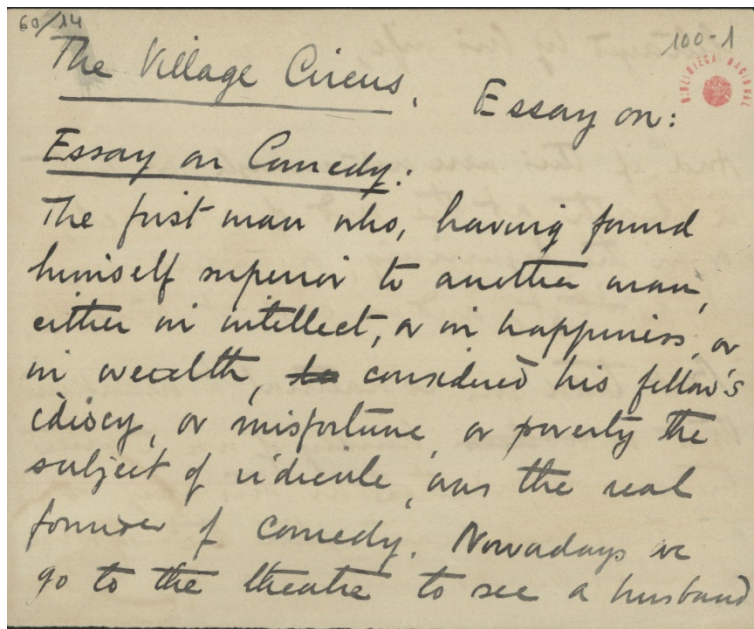 60/14
100-1
BIBLIOTECA NACIONAL
The Village Circus. Essay on:
Essay on Comedy:
The first man who, having found
himself superior to another man,
either in intellect, or in happiness, or
in wealth, to considered his fellow's
idiocy, or misfortune, or poverty the
subject of ridicule, was the real
founder of comedy. Nowadays we
go to the theatre to see a husband